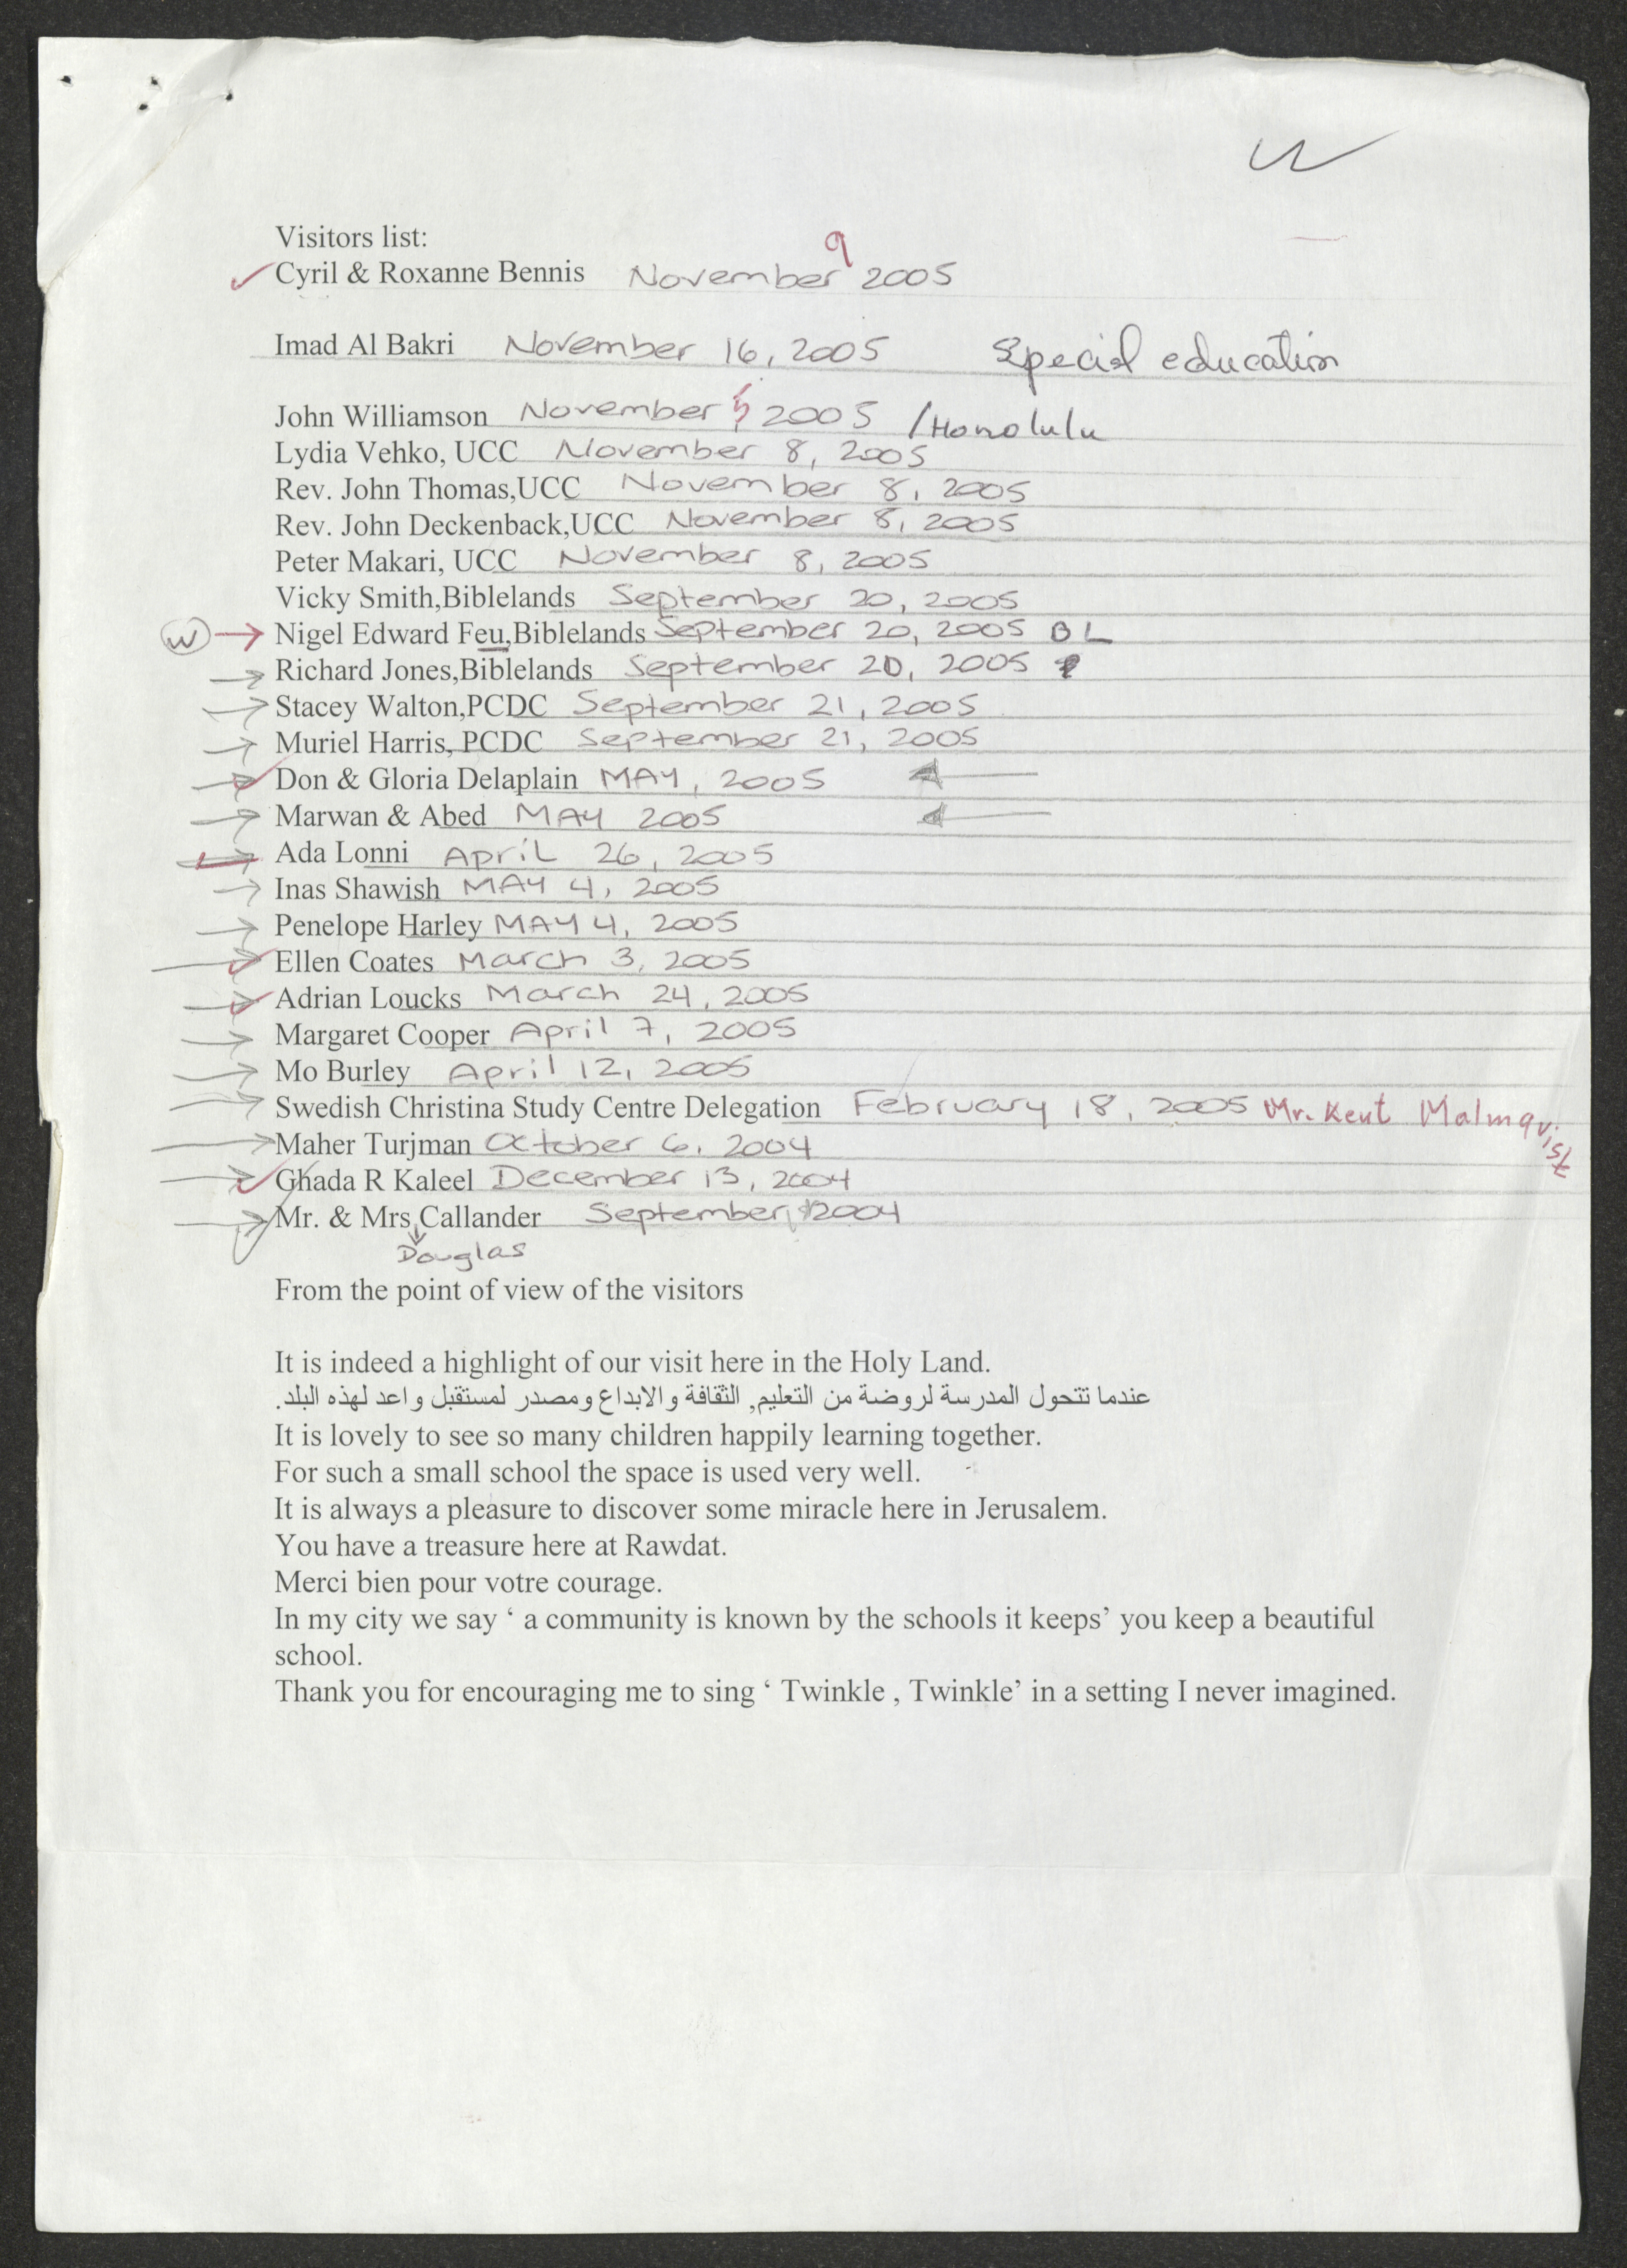 W
Visitors list:
Cyril & Roxanne Bennis November 9 2005
Imad Al Bakri November 16, 2005 Special education
John Williamson November 5 2005 / Honolulu
Lydia Vehko, UCC November 8, 2005
Rev. John Thomas,UCC November 8, 2005
Rev. John Deckenback,UCC November 8, 2005
Peter Makari, UCC November 8, 2005
Vicky Smith,Biblelands September 20, 2005
W Nigel Edward Feu,Biblelands September 20, 2005 BL
Richard Jones,Biblelands September 20, 2005
Stacey Walton,PCDC September 21, 2005
Muriel Harris, PCDC September 21, 2005
Don & Gloria Delaplain MAY, 2005
Marwan & Abed MAY 2005
Ada Lonni April 26, 2005
Inas Shawish MAY 4, 2005
Penelope Harley MAY 4, 2005
Ellen Coates March 3, 2005
Adrian Loucks March 24, 2005
Margaret Cooper April 7, 2005
Mo Burley April 12, 2005
Swedish Christina Study Centre Delegation February 18, 2005 Mr. Kent Malmqvist
Maher Turjman October 6, 2004
Ghada R Kaleel December 13, 2004
Mr. & Mrs Callander September 2004
Douglas
From the point of view of the visitors
It is indeed a highlight of our visit here in the Holy Land.
عندما تتحول المدرسة لروضة من التعليم, الثقافة والابداع ومصدر لمستقبل واعد لهذه البلد.
It is lovely to see so many children happily learning together.
For such a small school the space is used very well.
It is always a pleasure to discover some miracle here in Jerusalem.
You have a treasure here at Rawdat.
Merci bien pour votre courage.
In my city we say ‘ a community is known by the schools it keeps’ you keep a beautiful
school.
Thank you for encouraging me to sing ‘ Twinkle , Twinkle’ in a setting I never imagined.